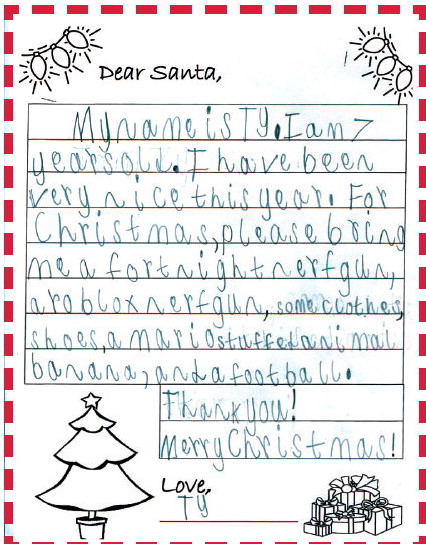 Dear Santa,
My name is Ty. I am 7
years old. I have been
very nice this year. For
Christmas, please bring
me a fortnight nerf gun,
a roblox nerf gun, some clothes,
shoes, a mario stuffed animal
banana, and a football.
Thank you!
Merry Christmas!
Love,
Ty